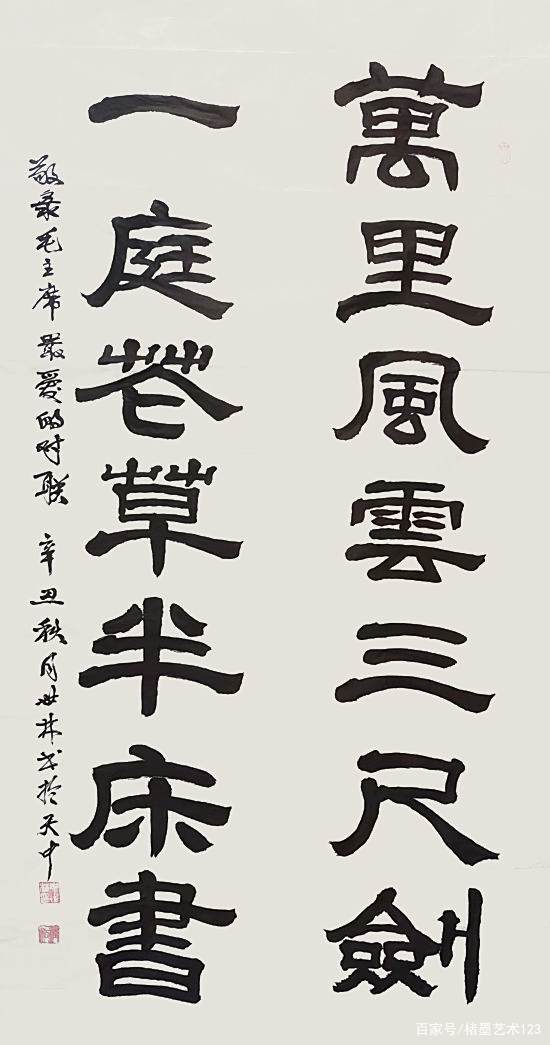 萬里風雲三尺劍
一庭花草半床書
敬录毛主席最爱的对联 辛丑秋月世林书於天中
百家号/楮墨艺术123